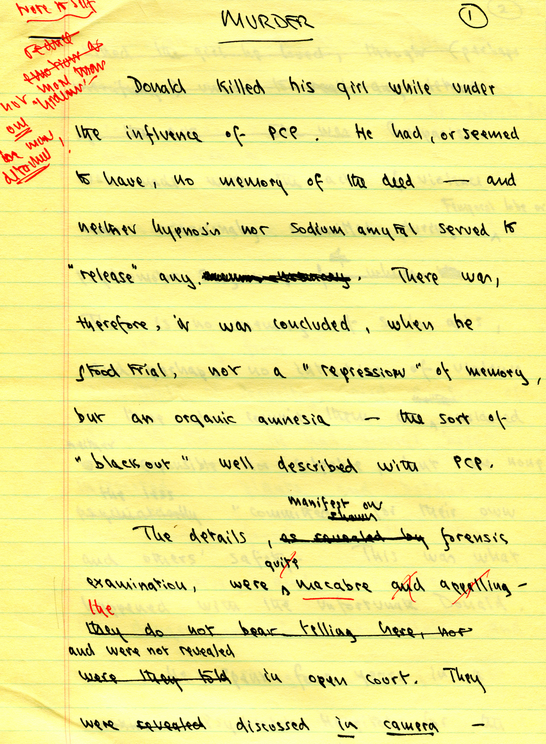 Note to self
MURDER
1
reduce
emotion as
not more than
"hidden"
on
detached
Donald killed his girl while under
the influence of PCP. He had, or seemed
to have, no memory of the deed — and
neither hypnosis nor sodium amytal served to
"release" any. There was,
therefore, it was concluded, when he
stood trial, not a "repression" of memory,
but an organic amnesia — the sort of
"blackout" well described with PCP.
manifest on
shown
The details, as revealed by forensic
quite
examination, were macabre and appalling —
the
they do not bear telling here, nor
and were not revealed
were they told in open court. They
were revealed discussed in camera —